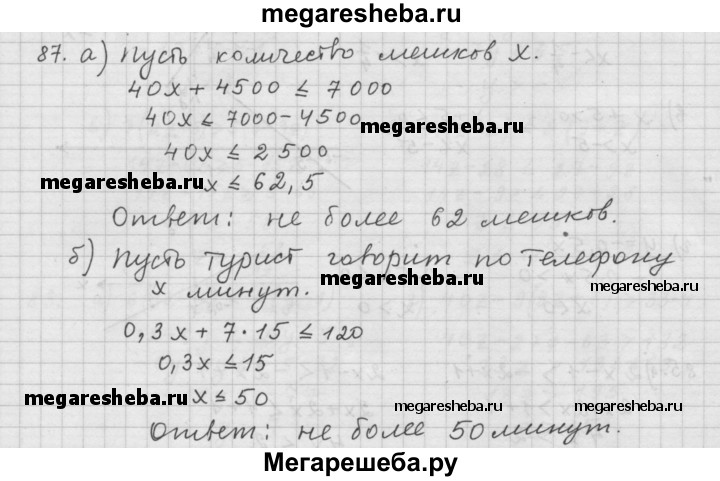 megaresheba.ru
87. а) Пусть количество мешков х.
40х + 4500 ≤ 7000
40х ≤ 7000 - 4500
megaresheba.ru
40х ≤ 2500
megaresheba.ru х ≤ 62,5
Ответ: не более 62 мешков.
б) Пусть турист говорит по телефону
х минут.
megaresheba.ru megaresheba.ru
0,3х + 7·15 ≤ 120
0,3х ≤ 15
megaresheba.ru х ≤ 50 megaresheba.ru megaresheba.ru
Ответ: не более 50 минут.
Мегарешеба.ру